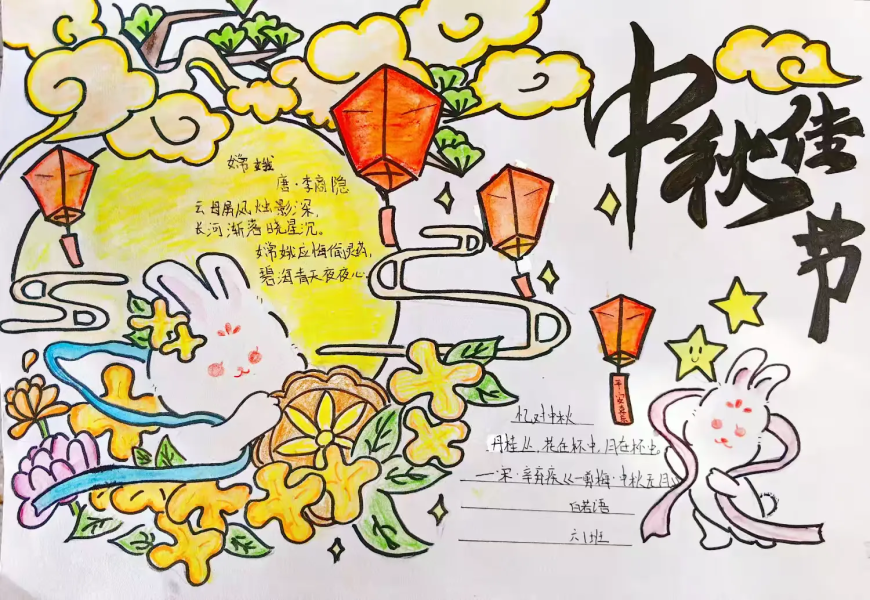 中秋佳节
嫦娥
唐·李商隐
云母屏风烛影深,
长河渐落晓星沉。
嫦娥应悔偷灵药,
碧海青天夜夜心。
平安喜乐
忆对中秋
丹桂丛,花在杯中,月在杯中。
一宋·辛弃疾《一剪梅·中秋无月》
白若语
六1班